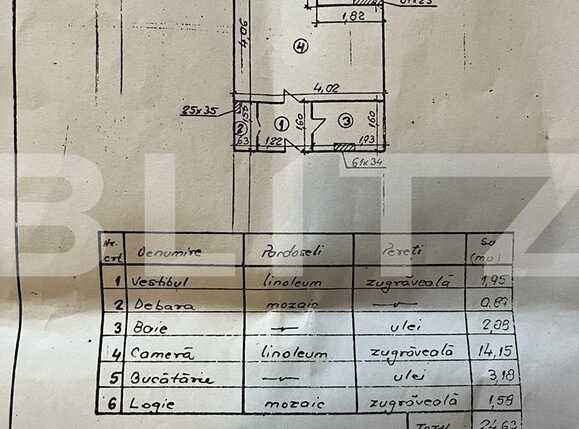 61x23
1,82
4,06
4
4,02
25x35
1,50
2
1
1,60
3
1,60
,63
1,22
1,93
61x34
BLITZ
Nr. crt. Denumire Pardoseli Pereti Su (mp)
1 Vestibul linoleum zugrăveală 1,95
2 Debara mozaic —〃— 0,87
3 Baie —〃— ulei 2,08
4 Cameră linoleum zugrăveală 14,15
5 Bucătărie —〃— ulei 3,18
6 Logie mozaic zugrăveală 1,58
Total 24,63